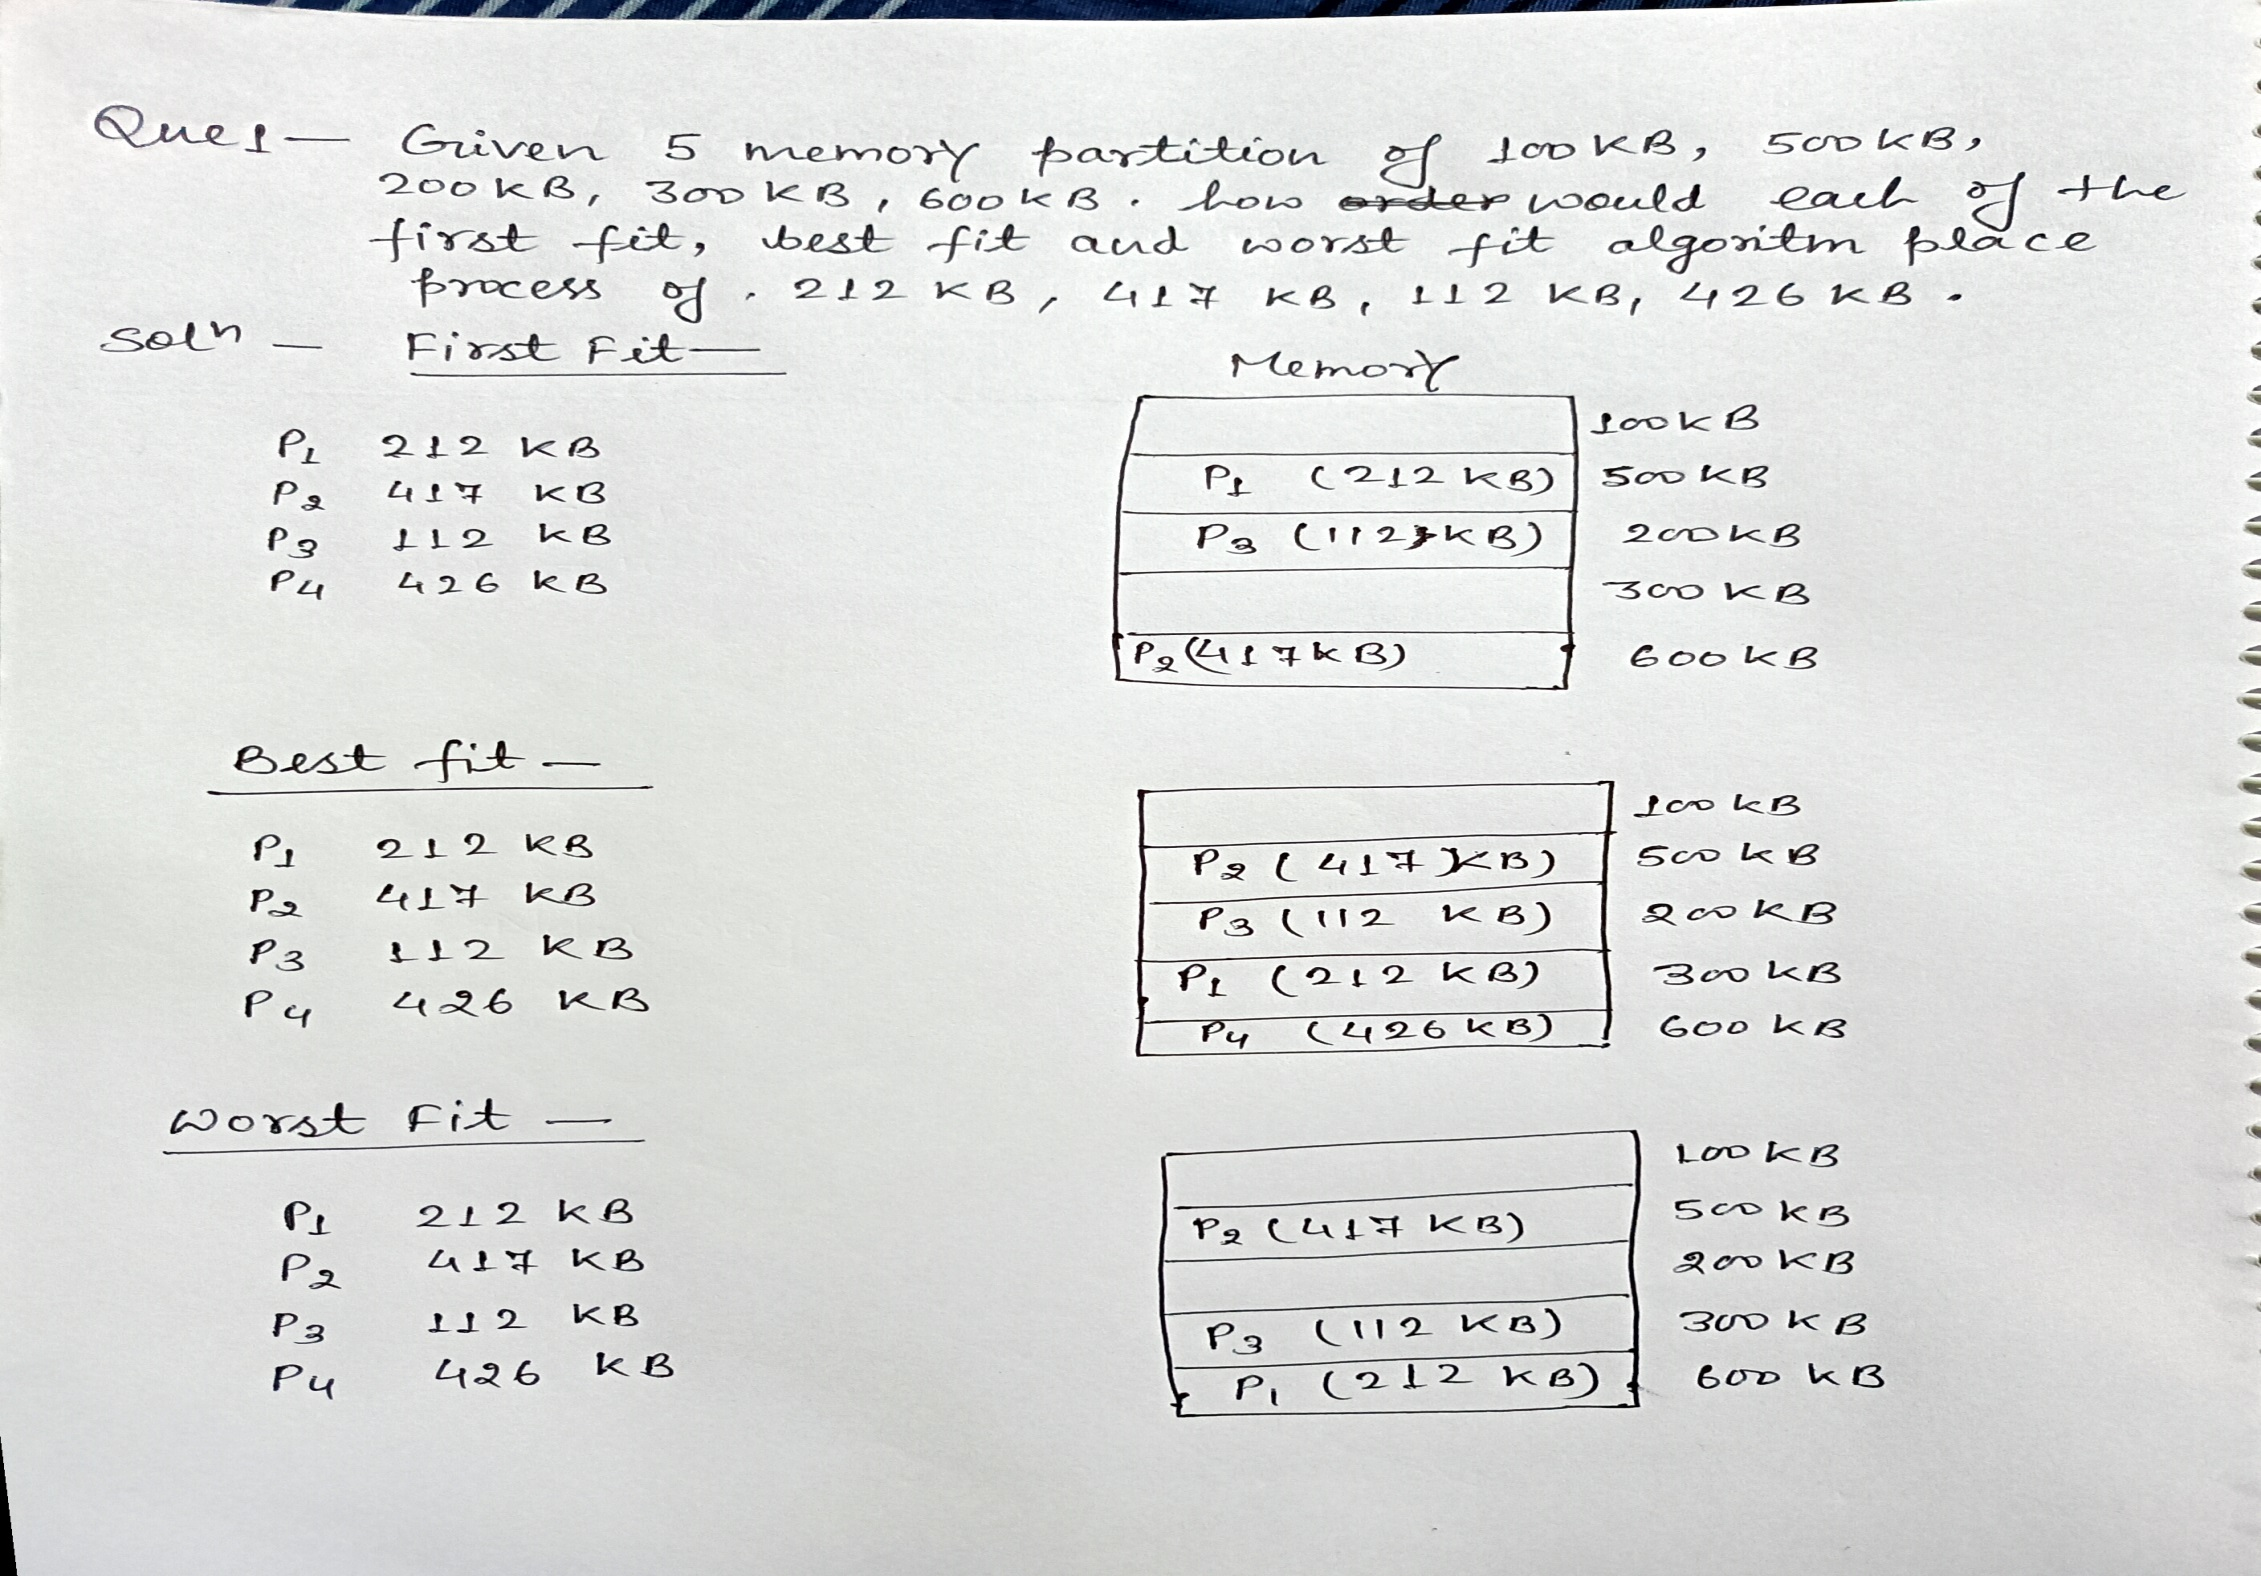 Ques — Given 5 memory partition of 100 KB, 500 KB,
200 KB, 300 KB, 600 KB. how order would each of the
first fit, best fit and worst fit algoritm place
process of. 212 KB, 417 KB, 112 KB, 426 KB.
Soln — First Fit —
Memory
P1 212 KB
P2 417 KB
P3 112 KB
P4 426 KB
100 KB
P1 (212 KB) 500 KB
P3 (112 KB) 200 KB
300 KB
P2 (417 KB) 600 KB
Best fit —
P1 212 KB
P2 417 KB
P3 112 KB
P4 426 KB
100 KB
P2 (417 KB) 500 KB
P3 (112 KB) 200 KB
P1 (212 KB) 300 KB
P4 (426 KB) 600 KB
Worst Fit —
P1 212 KB
P2 417 KB
P3 112 KB
P4 426 KB
100 KB
P2 (417 KB) 500 KB
200 KB
P3 (112 KB) 300 KB
P1 (212 KB) 600 KB